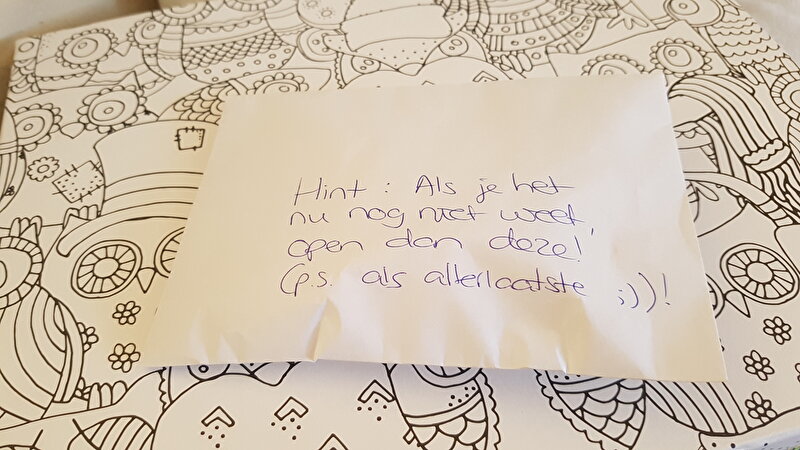 Hint : Als je het
nu nog niet weet,
open dan deze!
(p.s. als allerlaatste ;))!